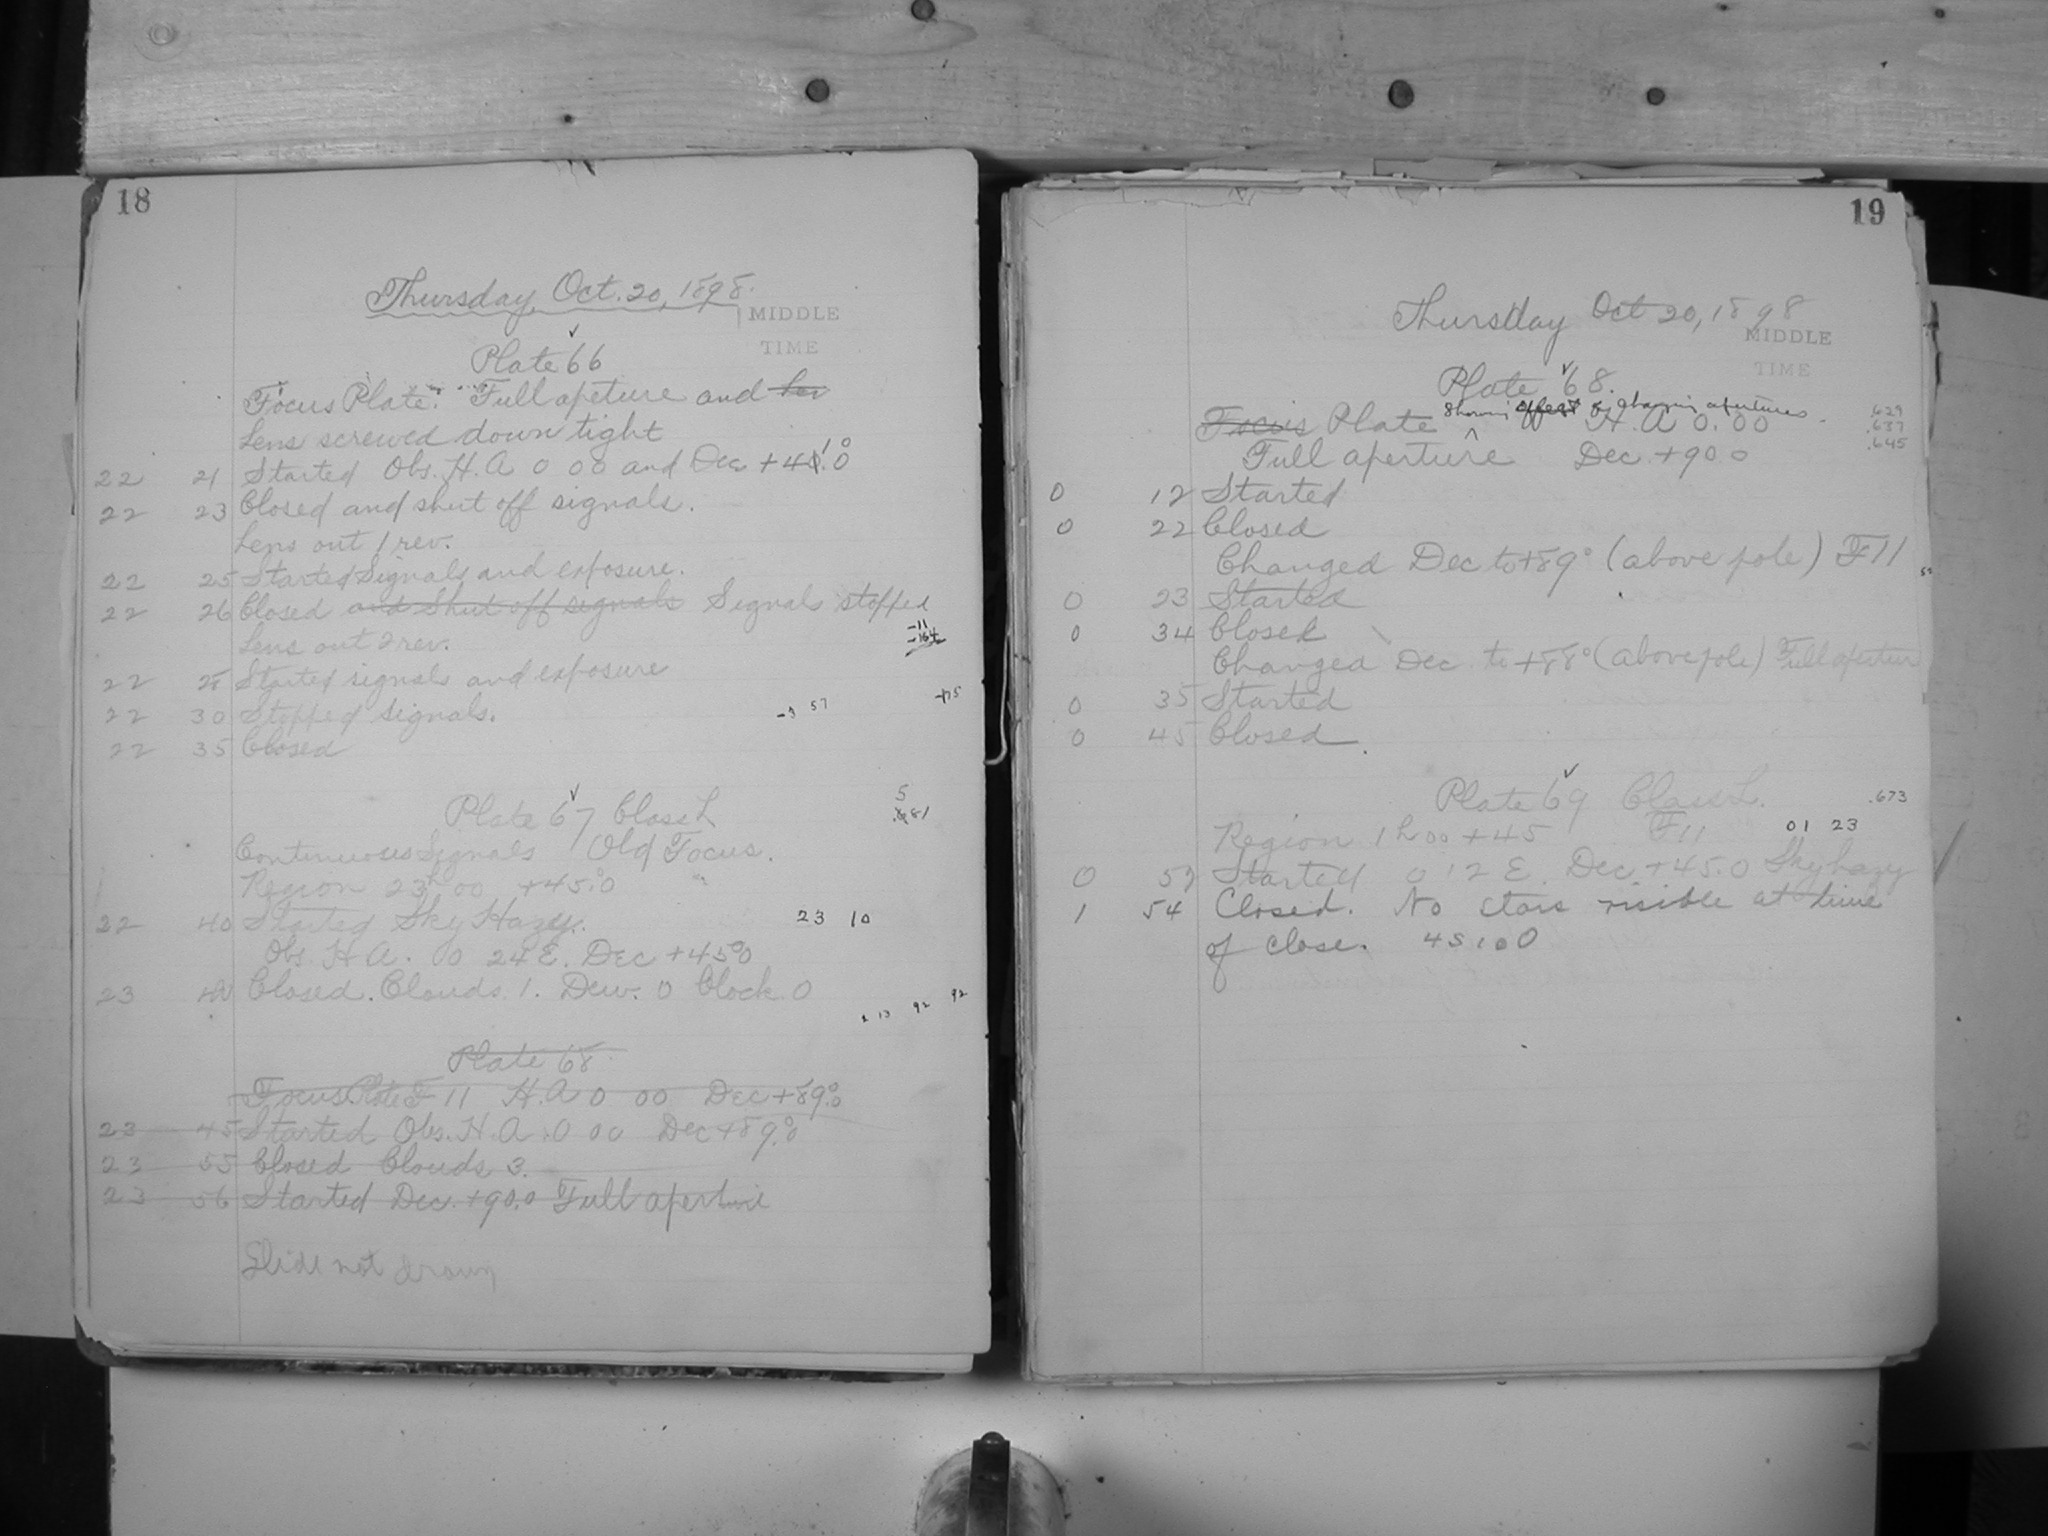 18
Thursday, Oct. 20, 1898.
MIDDLE
TIME
Plate 66
Focus Plate. Full apeture and
Lens screwed down tight
22 21 Started Obs. H.A 0 00 and Dec +41°.0
22 23 Closed and shut off signals.
Lens out 1 rev.
22 25 Started Signals and exposure.
22 26 Closed and Shut off signals Signals stopped
-11
Lens out 2 rev.
22 28 Started signals and exposure
22 30 Stopped Signals. -3 57 +75
22 35 Closed
Plate 67 Class L
Continuous Signals Old Focus.
Region 23h 00 +45°.0
22 40 Started Sky Hazy. 23 10
Obs. H A. 0 24 E. Dec +45°0
23 Closed. Clouds 1. Dew. 0 Clock 0
13 92 92
Plate 68
Focus Plate F 11 H.A 0 00 Dec +89°.0
23 45 Started Obs. H.A 0 00 Dec +89°.0
23 55 Closed Clouds 3.
23 56 Started Dec. +90.0 Full aperture
Slide not drawn
19
Thursday Oct 20, 1898
MIDDLE
TIME
Plate 68.
Showing effect of changing apertures.
Focus Plate H.A 0.00
.629
.637
.645
Full aperture Dec. +90 0
0 12 Started
0 22 Closed
Changed Dec to +89° (above pole) F 11
0 23 Started
0 34 Closed
Changed Dec. to +88° (above pole) Full apertur
0 35 Started
0 45 Closed.
Plate 69 Class L. .673
Region 1h 00 +45 F 11 01 23
0 Started 0 12 E. Dec +45.0 Sky hazy
1 54 Closed. No stars visible at time
of close. 45 1 0 0